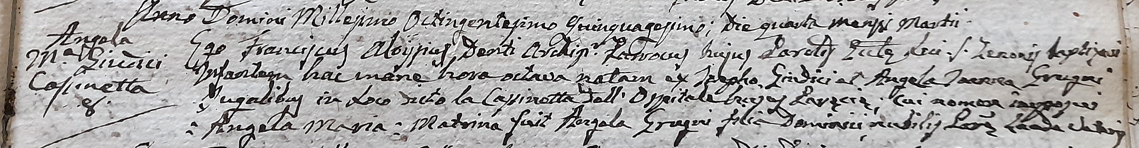 Anno Domini Millesimo Octingentesimo Quinquagesimo; Die quarta mensis Martii
Angela
Mª Giudici
Cassinetta
8.
Ego Franciscus Aloysius Denti Archipr. Parrocus hujus Paroch. Eccle. Loci S. Zenonis baptizavi
Infantem hac mane hora octava natam ex Josepho Giudici et Angela Gregori
Jugalibus in Loco dicto la Cassinetta dell' Ospitale hujus Parœciæ, cui nomen imposui
= Angela Maria = Matrina fuit Angela Gregori filia Dominici nubilis